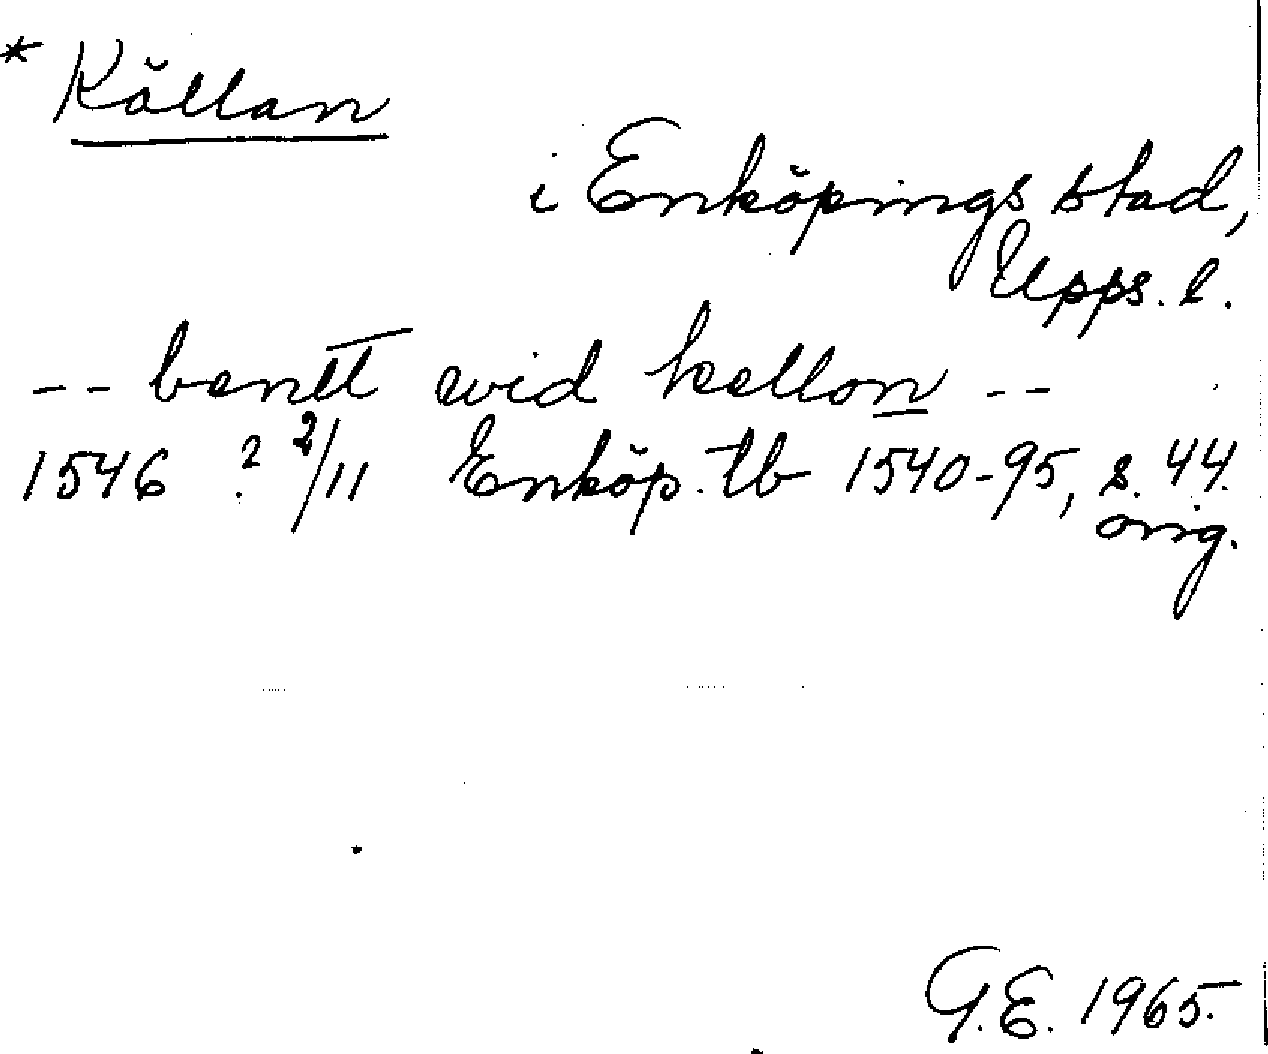 * Källan
i Enköpings stad,
Upps. l.
-- bentt wid kellon --
1546 ? 2/11 Enköp. tb 1540-95, s. 44.
orig.
G.E. 1965.